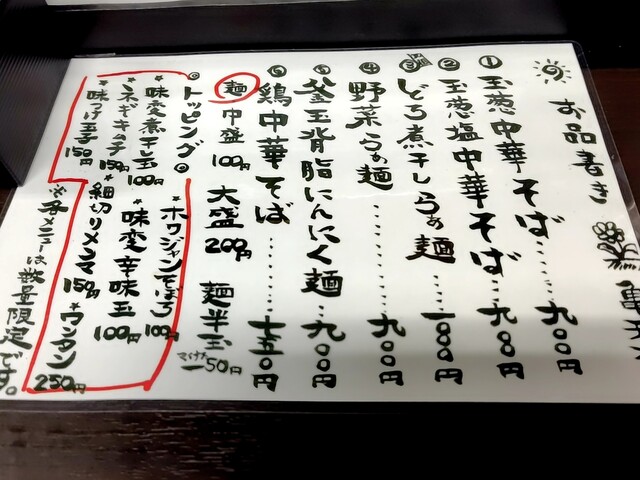 お品書き
① 玉葱中華そば……九〇〇円
② 玉葱塩中華そば…九〇〇円
③ どろ煮干しらぁ麺……一〇〇〇円
④ 野菜らぁ麺……九〇〇円
⑤ 釜玉背脂にんにく麺…九〇〇円
⑥ 鶏中華そば……七五〇円
麺 中盛100円 大盛200円 麺半玉マイナス50円
◎トッピング◎
*ホウジャンそぼろ100円
*味変煮干し玉100円
*味変辛味玉100円
*ネギキムチ150円
*細切りメンマ150円
*味つけ玉子150円
*ワンタン250円
※各メニューは数量限定です。